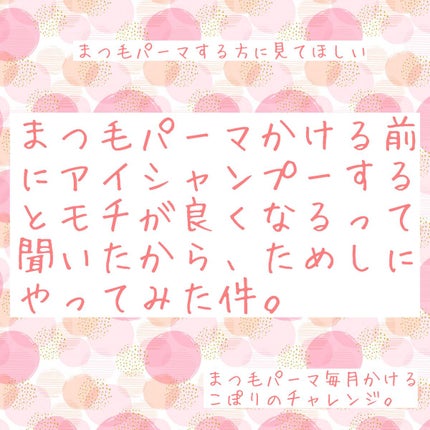 まつ毛パーマする方に見てほしい
まつ毛パーマかける前
にアイシャンプーする
とモチが良くなるって
聞いたから、ためしに
やってみた件。
まつ毛パーマ毎月かける
こぱりのチャレンジ。